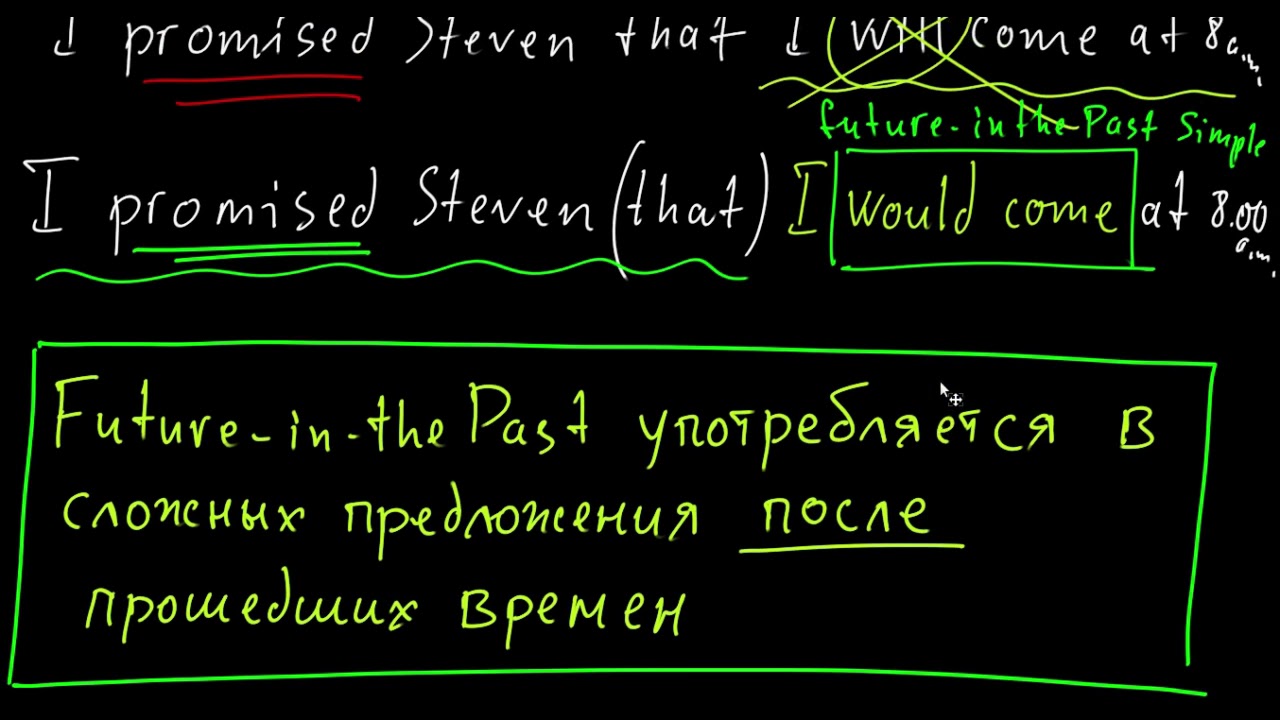 I promised Steven that I will come at 8 a.m.
future-in the Past Simple
I promised Steven (that) I would come at 8.00 a.m.
Future-in-the Past употребляется в
сложных предложения после
прошедших времен